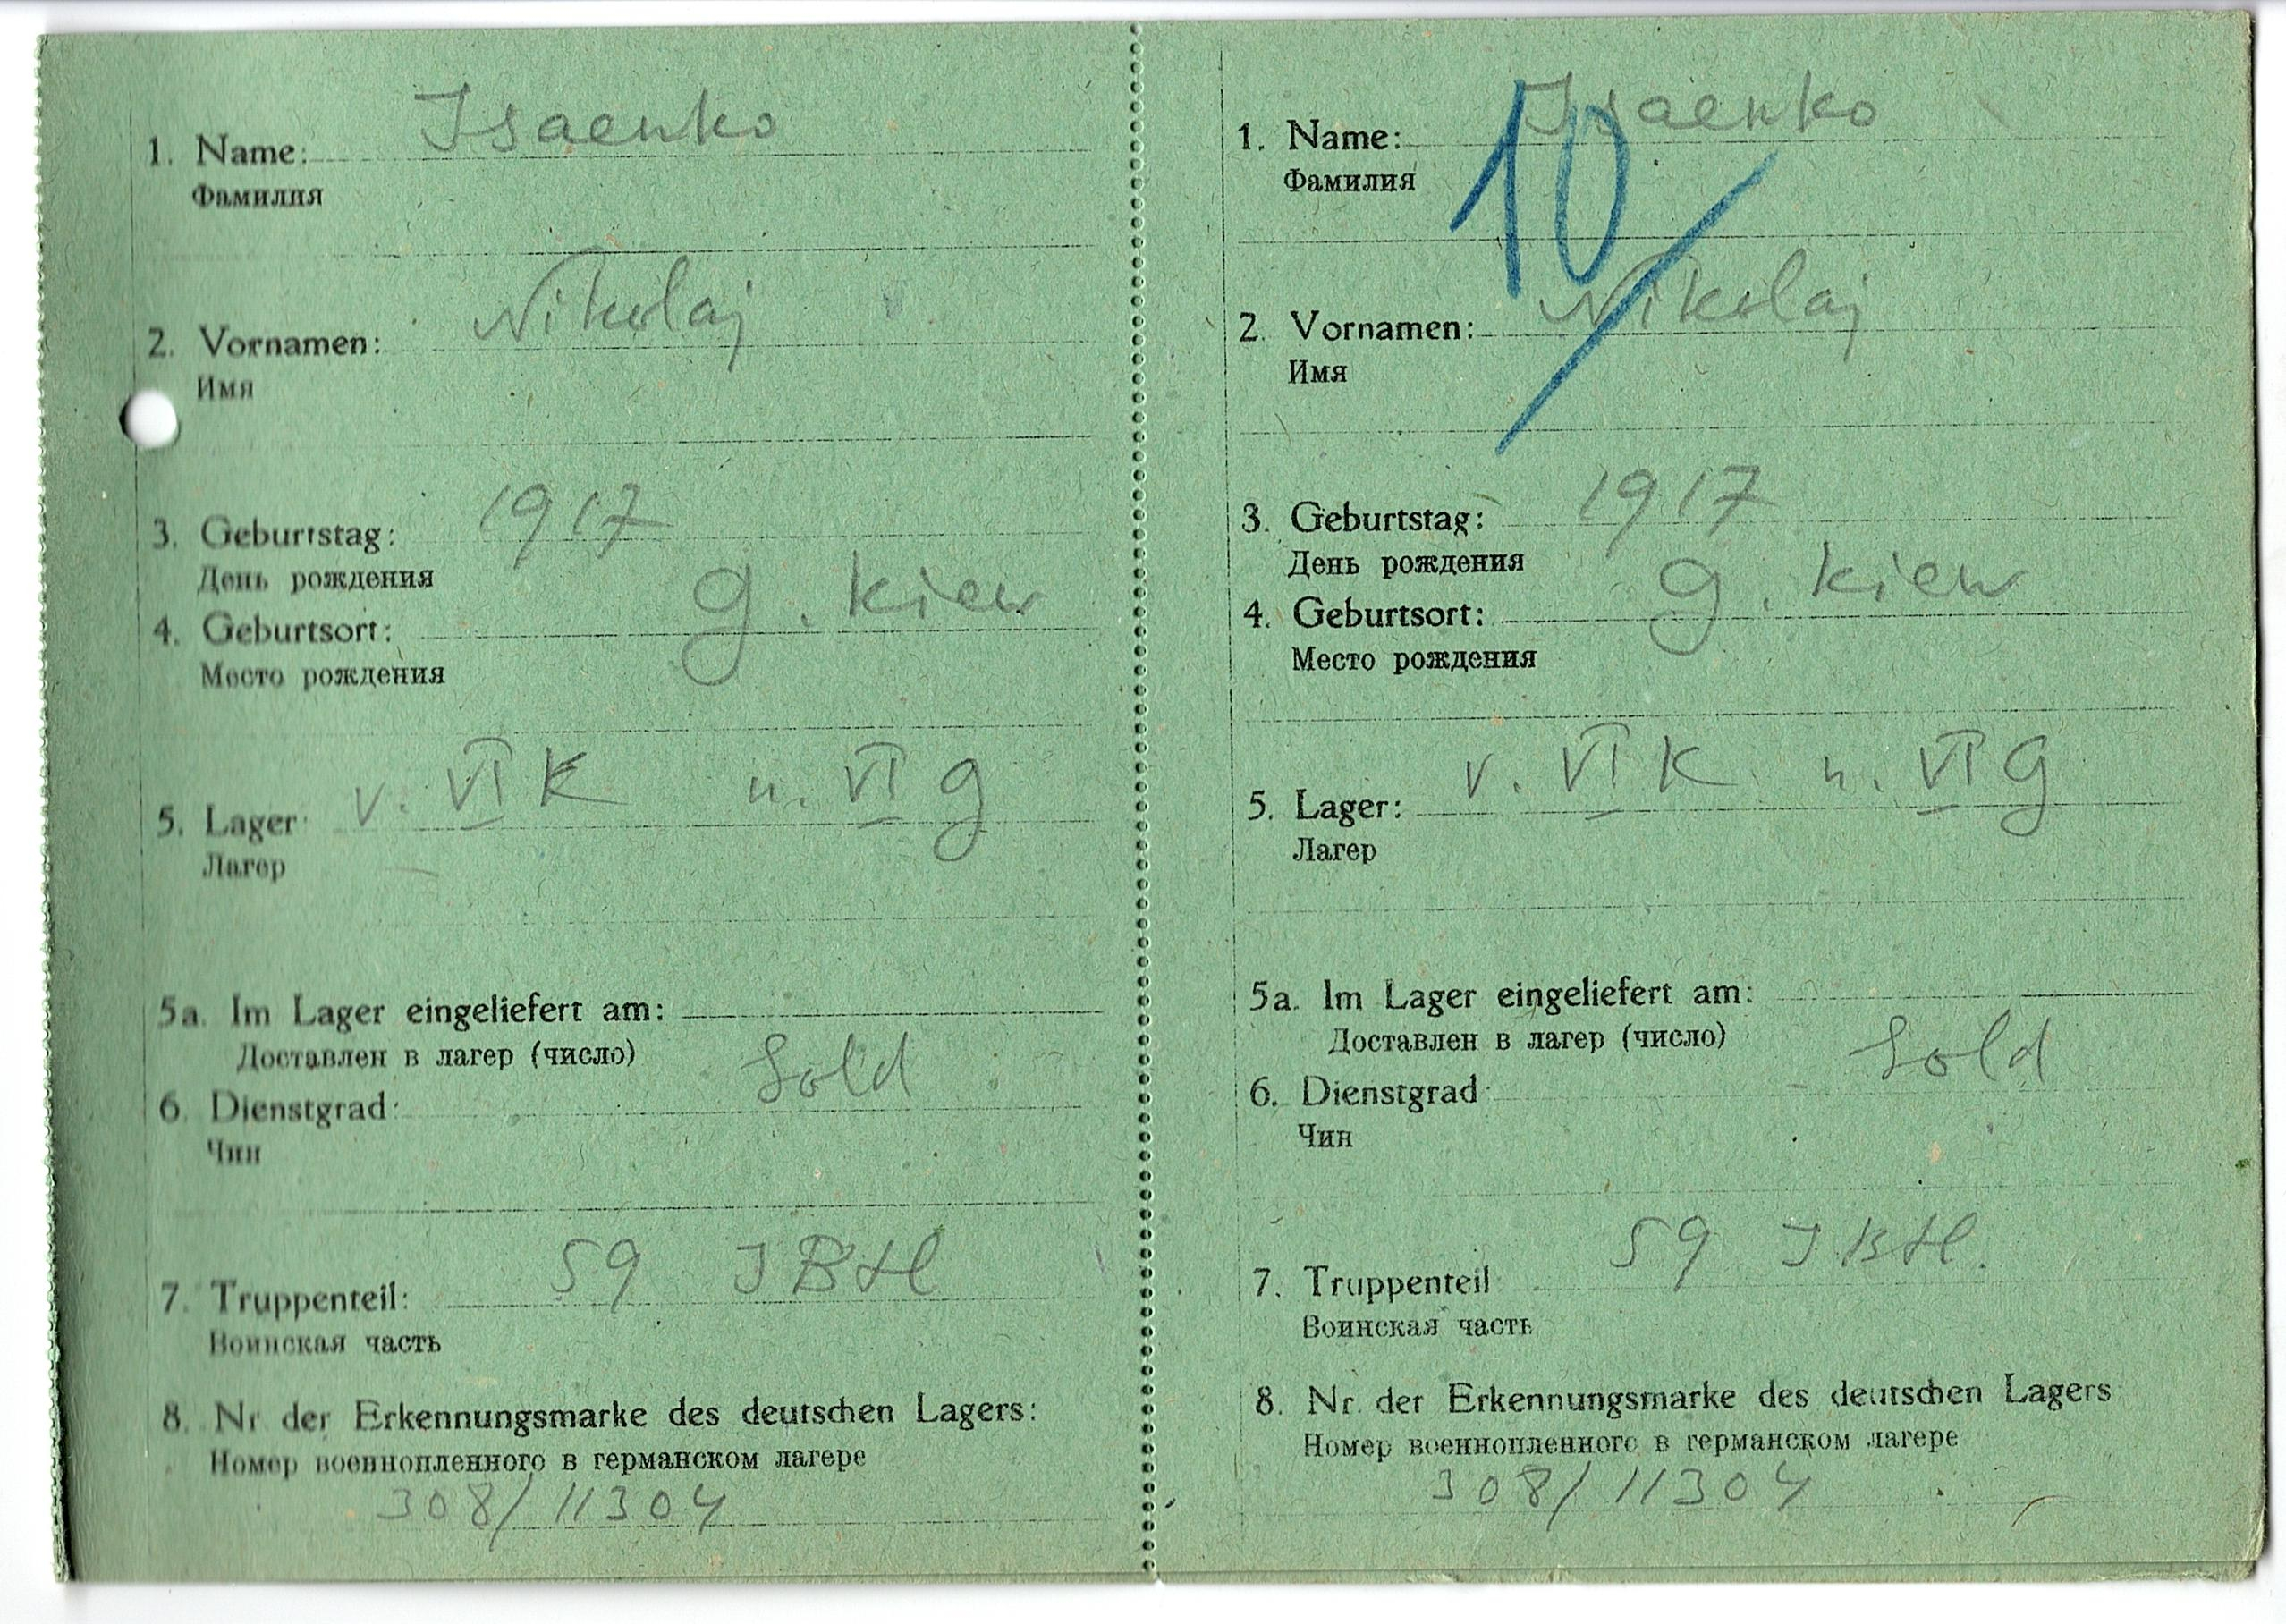 1. Name: Isaenko
Фамилия
2. Vornamen: Nikolaj
Имя
3. Geburtstag: 1917
День рождения
4. Geburtsort: g. Kiew
Место рождения
5. Lager: v. VI K n. VI G
Лагер
5a. Im Lager eingeliefert am:
Доставлен в лагер (число)
6. Dienstgrad: Sold
Чин
7. Truppenteil: 59 I Btl
Воинская часть
8. Nr der Erkennungsmarke des deutschen Lagers:
Номер военнопленного в германском лагере
308/11304
1. Name: Isaenko
Фамилия
10
2. Vornamen: Nikolaj
Имя
3. Geburtstag: 1917
День рождения
4. Geburtsort: g. Kiew
Место рождения
5. Lager: v. VI K n. VI G
Лагер
5a. Im Lager eingeliefert am:
Доставлен в лагер (число)
6. Dienstgrad Sold
Чин
7. Truppenteil 59 I Btl.
Воинская часть
8. Nr. der Erkennungsmarke des deutschen Lagers
Номер военнопленного в германском лагере
308/11304